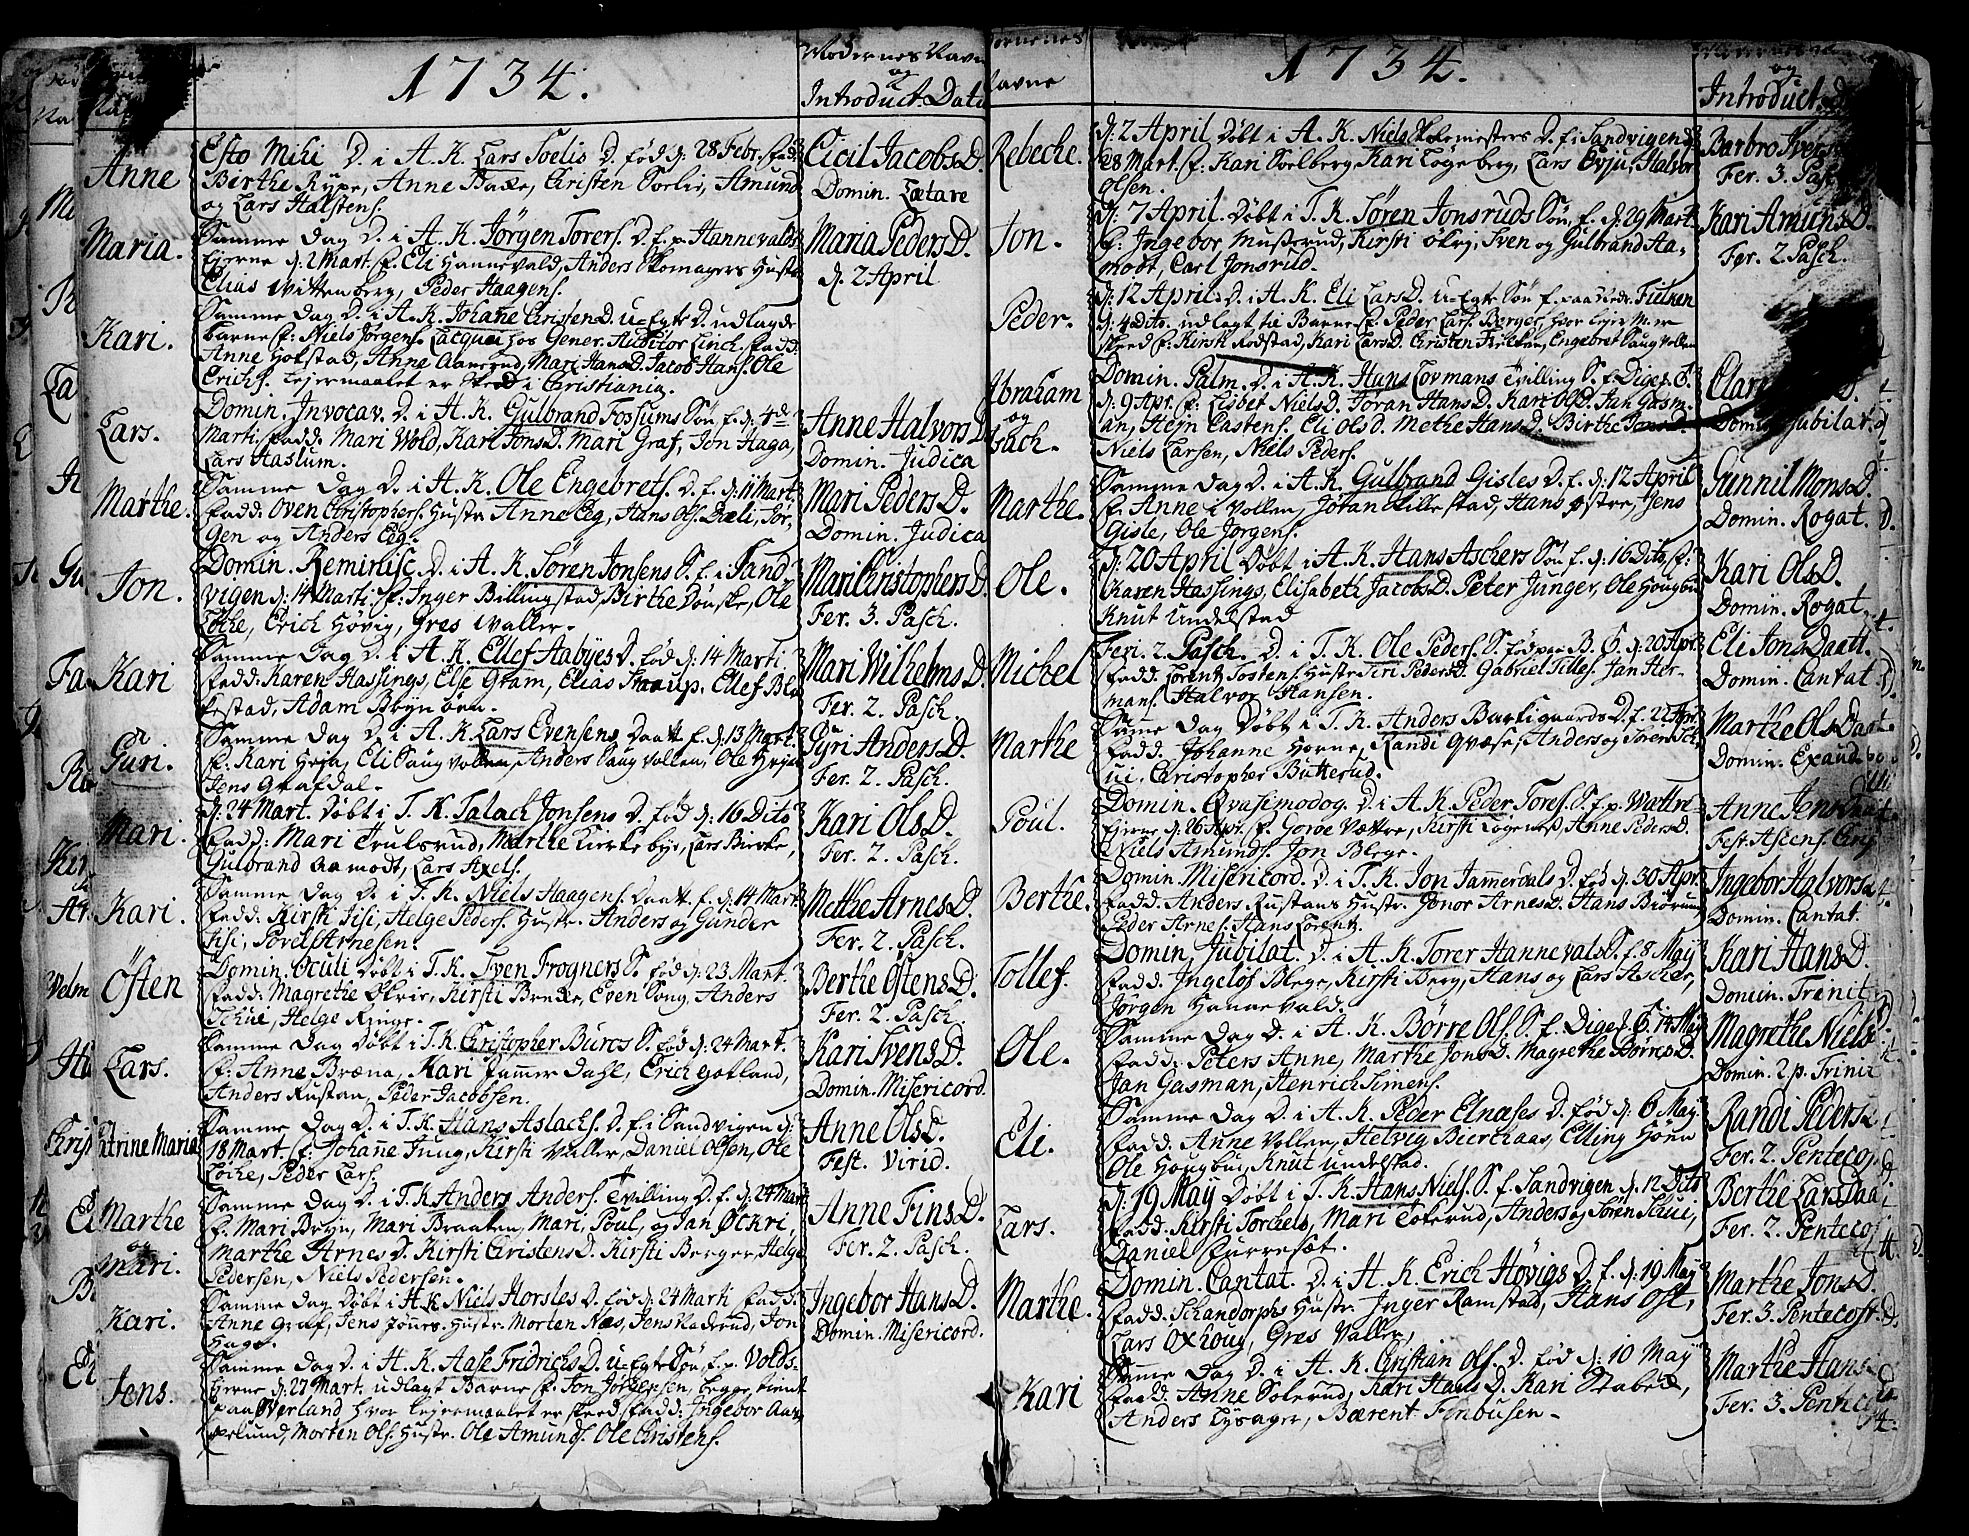 1734.
Modernes Navn
og
Introduct. Data
Anne
Esto Mihi D. i A. K. Lars Soelis D. fød d: 28 Febr. fad.
Birthe Rype, Anne Bake, Christen Soelie, Amund
og Lars Halstens.
Cicil Jacobs D.
Domin. Lætare
Maria.
Samme Dag D. i A. K. Jørgen Torers. D. f. p. Hannevalds
Eierne d: 2 Mart. f. Eli Hannevald, Anders Skomagers Hustr
Elias Wittenberg, Peder Haagens.
Maria Peders D.
d. 2 April
Kari.
Samme Dag D. i A. K. Johañe Christens D. u-Egte D. udlagde
Barnef: Niels Jørgens. Lacquei hos Gener. Auditor Linch, fadd.
Anne Hofstad, Anne Aanerud, Mari Hans D. Jacob Hans. Ole
Erichs. Lejermaalet er skeed i Christiania.
Lars.
Domin. Invocav. D. i A. K. Gulbrand Fossums Søn f. d: 4de
Marti. fadd. Mari Wold, Kari Jons D. Mari Graf, Jon Haga,
Lars Haslum.
Anne Halvors D.
Domin. Judica
Marthe.
Samme Dag D. i A. K. Ole Engebrets. D. f. d: 11 Mart.
fadd: Oven Christophers. Hustr. Anne Eg, Hans Ols. Bæli, Jør,
gen og Anders Eeg.
Mari Peders D.
Domin. Judica
Jon.
Domin. Reminisc. D. i A. K. Søren Jonsens S. f. i Sand
vigen d: 14 Marti. f: Inger Billingstad, Birthe Dønske, Ole
Løche, Erich Høvig, Gres Waller.
Mari Christophers D.
Fer. 3. Pasch.
Kari
Samme Dag D. i A. K. Ellef Aabyes D. fød d: 14 Marti
fadd: Karen Hassings, Else Gram, Elias Staarup, Ellef Bl
estad, Adam Bryn øen.
Mari Wilhelms D.
Fer. 2. Pasch.
Guri.
Samme Dag D. i A. K. Lars Evensens Daatt. f. d: 13 Mart.
f. Kari Heja, Eli Saugvollen, Anders Saugvollen, Ole Heja
Jens Grafdal.
Gyri Anders D.
Fer. 2. Pasch.
Mari.
d: 24 Mart. Døbt i T. K. Salach Jonsens D. fød d: 16 Dito
fadd: Mari Trulsrud, Marthe Kirkeby, Lars Bircke,
Gulbrand Aamodt, Lars Axels.
Kari Ols D.
Fer. 2. Pasch.
Kari.
Samme Dag D. i T. K. Niels Haagens. Daatt. f. d: 14 Mart.
fadd: Kirsti Sisi, Helge Peders. Hustr. Anders og Gunder
Sisi, Povel Arnesen.
Mette Arnes D.
Fer. 2. Pasch.
Østen
Domin. Oculi Døbt i T. K. Sven Frogners S. fød d: 23 Mart.
fadd: Magrethe Økrie, Kirsti Brække, Even Saug, Anders
Schui, Helge Ringe.
Berthe Østens D.
Fer. 2. Pasch.
Lars.
Samme Dag Døbt i T. K. Christopher Burøs S. fød d: 24 Mart.
f: Anne Bræna, Kari Jammerdahl, Erich Gotland,
Anders Rustan, Peder Jacobsen.
Kari Ivens D.
Domin. Misericord.
Catrine Maria
Samme Dag D. i T. K. Hans Aslachs. D. f. i Sandvigen d:
18 Mart. f: Johañe Jung, Kirsti Valler, Daniel Olsen, Ole
Løche, Peder Lars.
Anne Ols D.
Fest. Virid.
Marthe
og
Mari.
Samme Dag D. i T. K. Anders Anders. Tvilling D. f. d: 24 Mart
f. Mari Bryn, Mari Braaten, Mari, Poul, og Jan Øckri,
Marthe Arnes D. Kirsti Christens D. Kirsti Berger, Helge
Pedersen, Niels Pedersen.
Anne Fins D.
Fer. 2. Pasch.
Kari.
Samme Dag Døbt i A. K. Niels Horsles D. fød d: 24 Marti fadd:
Anne Graf, Jens Hustr. Morten Næs, Jens Kaderud, Jon
Hage.
Ingebor Hans D.
Domin. Misericord.
Jens.
Samme Dag D. i A. K. Aase Fridrichs D. u-Egte Søn, f. p. Volds-
Eierne d: 27 Mart. udlagt Barnef. Jon Jørgensen, begge tient
paa Øverland hvor Lejermaalet er skeed fadd: Ingebor Aan
erlund, Morten Ols. Hustr. Ole Amunds. Ole Christens.
1734.
ørnenes
Navne
og
Introduct. D
Rebeche.
d: 2 April Døbt i A. K. Niels Skolemesters D. f. i Sandvigen d:
28 Mart. f. Kari Solberg, Kari Løgeberg, Lars Evju, Halvor
Olsen.
Barbro Ivers
Fer. 3. Pasch
Jon.
d: 7 April. Døbt i T. K. Søren Jonsruds Søn, f. d: 29 Mart.
f: Ingebor Musserud, Kirsti Økri, Sven og Gulbrand Aa-
modt, Carl Jonsrud.
Kari Amuns D.
Fer. 2. Pasch.
Peder.
d: 12 April. D. i A. K. Eli Lars D. u-Egte Søn f. paa Fielken
d: 4 Dito. udlagt til Barnef. Peder Lars. Berger, hvor Lejerm. er
skeed f. Kirsti Rodstad, Kari Lars D. Christen Fielken, Engebret Saugvollen
Abraham
og
Isach.
Domin. Palm. D. i A. K. Hans Lovmans Tvilling S. f. Diget. S.
d: 9 Apr. f: Lisbet Niels D. Joran Hans D. Kari Ols D. Jan Gasm.
an, Hejn Castens. Eli Ols D. Methe Hans D. Birthe Jons D.
Niels Larsen, Niels Peders.
Clar D.
Domin. Jubilat.
Marthe.
Samme Dag D. i A. K. Gulbrand Gisles D. f. d: 12 April
f: Anne i Vollen, Joran Killestad, Hans Østre, Jens
Gisle, Ole Jørgens.
Gunnil Mons D.
Domin. Rogat.
Ole.
d: 20 April Døbt i A. K. Hans Aschers Søn f. d: 16 Dito, f:
Karen Hassings, Elisabeth Jacobs D. Peter Junger, Ole Hougbu
Knut Undelstad
Kari Ols D.
Domin. Rogat.
Michel
Feri. 2. Pasch. D. i T. K. Ole Peders. S. fød paa B. S. d: 20 Apr.
fadd. Lorentz Tostens. Hustr. Siri Peders D. Gabriel Tilles. Jan Her-
mans. Halvor Hansen.
Eli Jons Daatt.
Domin. Cantat.
Marthe
Same Dag Døbt i T. K. Anders Barkigaards D. f. 22 Apr.
fadd. Johanne Horne, Randi Gvæse, Anders og Søren Sch
ui, Christopher Butterud.
Marthe Ols Daat
Domin. Exaud
Poul.
Domin. Qvasimodog. D. i A. K. Peder Tores. S. f. p. Wettre-
Eierne d: 26 Apr. f. Goroe Vættre, Kirsti Løgenes, Anne Peders D.
Niels Amunds. Jon Blege.
Anne Jens Daatt.
Fest. Ascens. Crisj
Berthe.
Domin. Misericord. D. i T. K. Jon Jammerdals D. fød d: 30 Apr.
fadd. Anders Rustans Hustr. Gonor Arnes D. Hans Biørum
Peder Arnes. Hans Lorentz.
Ingebor Halvors
Domin. Cantat.
Tollef.
Domin. Jubilat. D. i A. K. Torer Hannevals S. f. 8 May
fadd. Ingeløf Blege, Kirsti Berg, Hans og Lars Ascher,
Jørgen Hannevald.
Kari Hans D.
Domin. Trinit
Ole.
Samme Dag D. i A. K. Børre Ols. S. f. Diget S. 14 May
fadd: Peters Anne, Marthe Jons D. Magrethe Børres D.
Jan Gasman, Henrich Simens.
Magrethe Niels
Domin. 2. p. Trinit
Eli.
Samme Dag D. i A. K. Peder Elnæses D. fød d. 6 May
fadd: Anne Vollen, Helvig Bierchaas, Elling Hønn
Ole Hougbu, Knut Undelstad.
Randi Peders
Fer. 2. Penteco.
Lars.
d: 19 May Døbt i T. K. Hans Niels. S. f. Sandvigen d: 12 Dito
fadd: Kirsti Torchels, Mari Tokerud, Anders og Søren Schui,
Daniel Purresæt.
Berthe Lars Daa
Fer. 2. Penteco
Marthe.
Domin. Cantat. D. i A. K. Erich Høvigs D. f. d: 19 May
fadd: Schandorphs Hustr. Inger Ramstad, Hans Ost,
Lars Oxhoug, Gres Valler,
Marthe Jons D.
Fer. 3. Pentecost.
Kari
Samme Dag D. i A. K. Christian Ols. D. fød d: 10 May
fadd: Anne Solerud, Kari Hans D. Kari Stabek,
Anders Lysager, Bærent Finbusen.
Marthe Hans
Fer. 3. Penteco